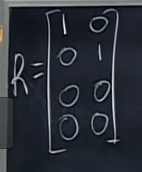 R = [ 1 0
0 1
0 0
0 0 ]